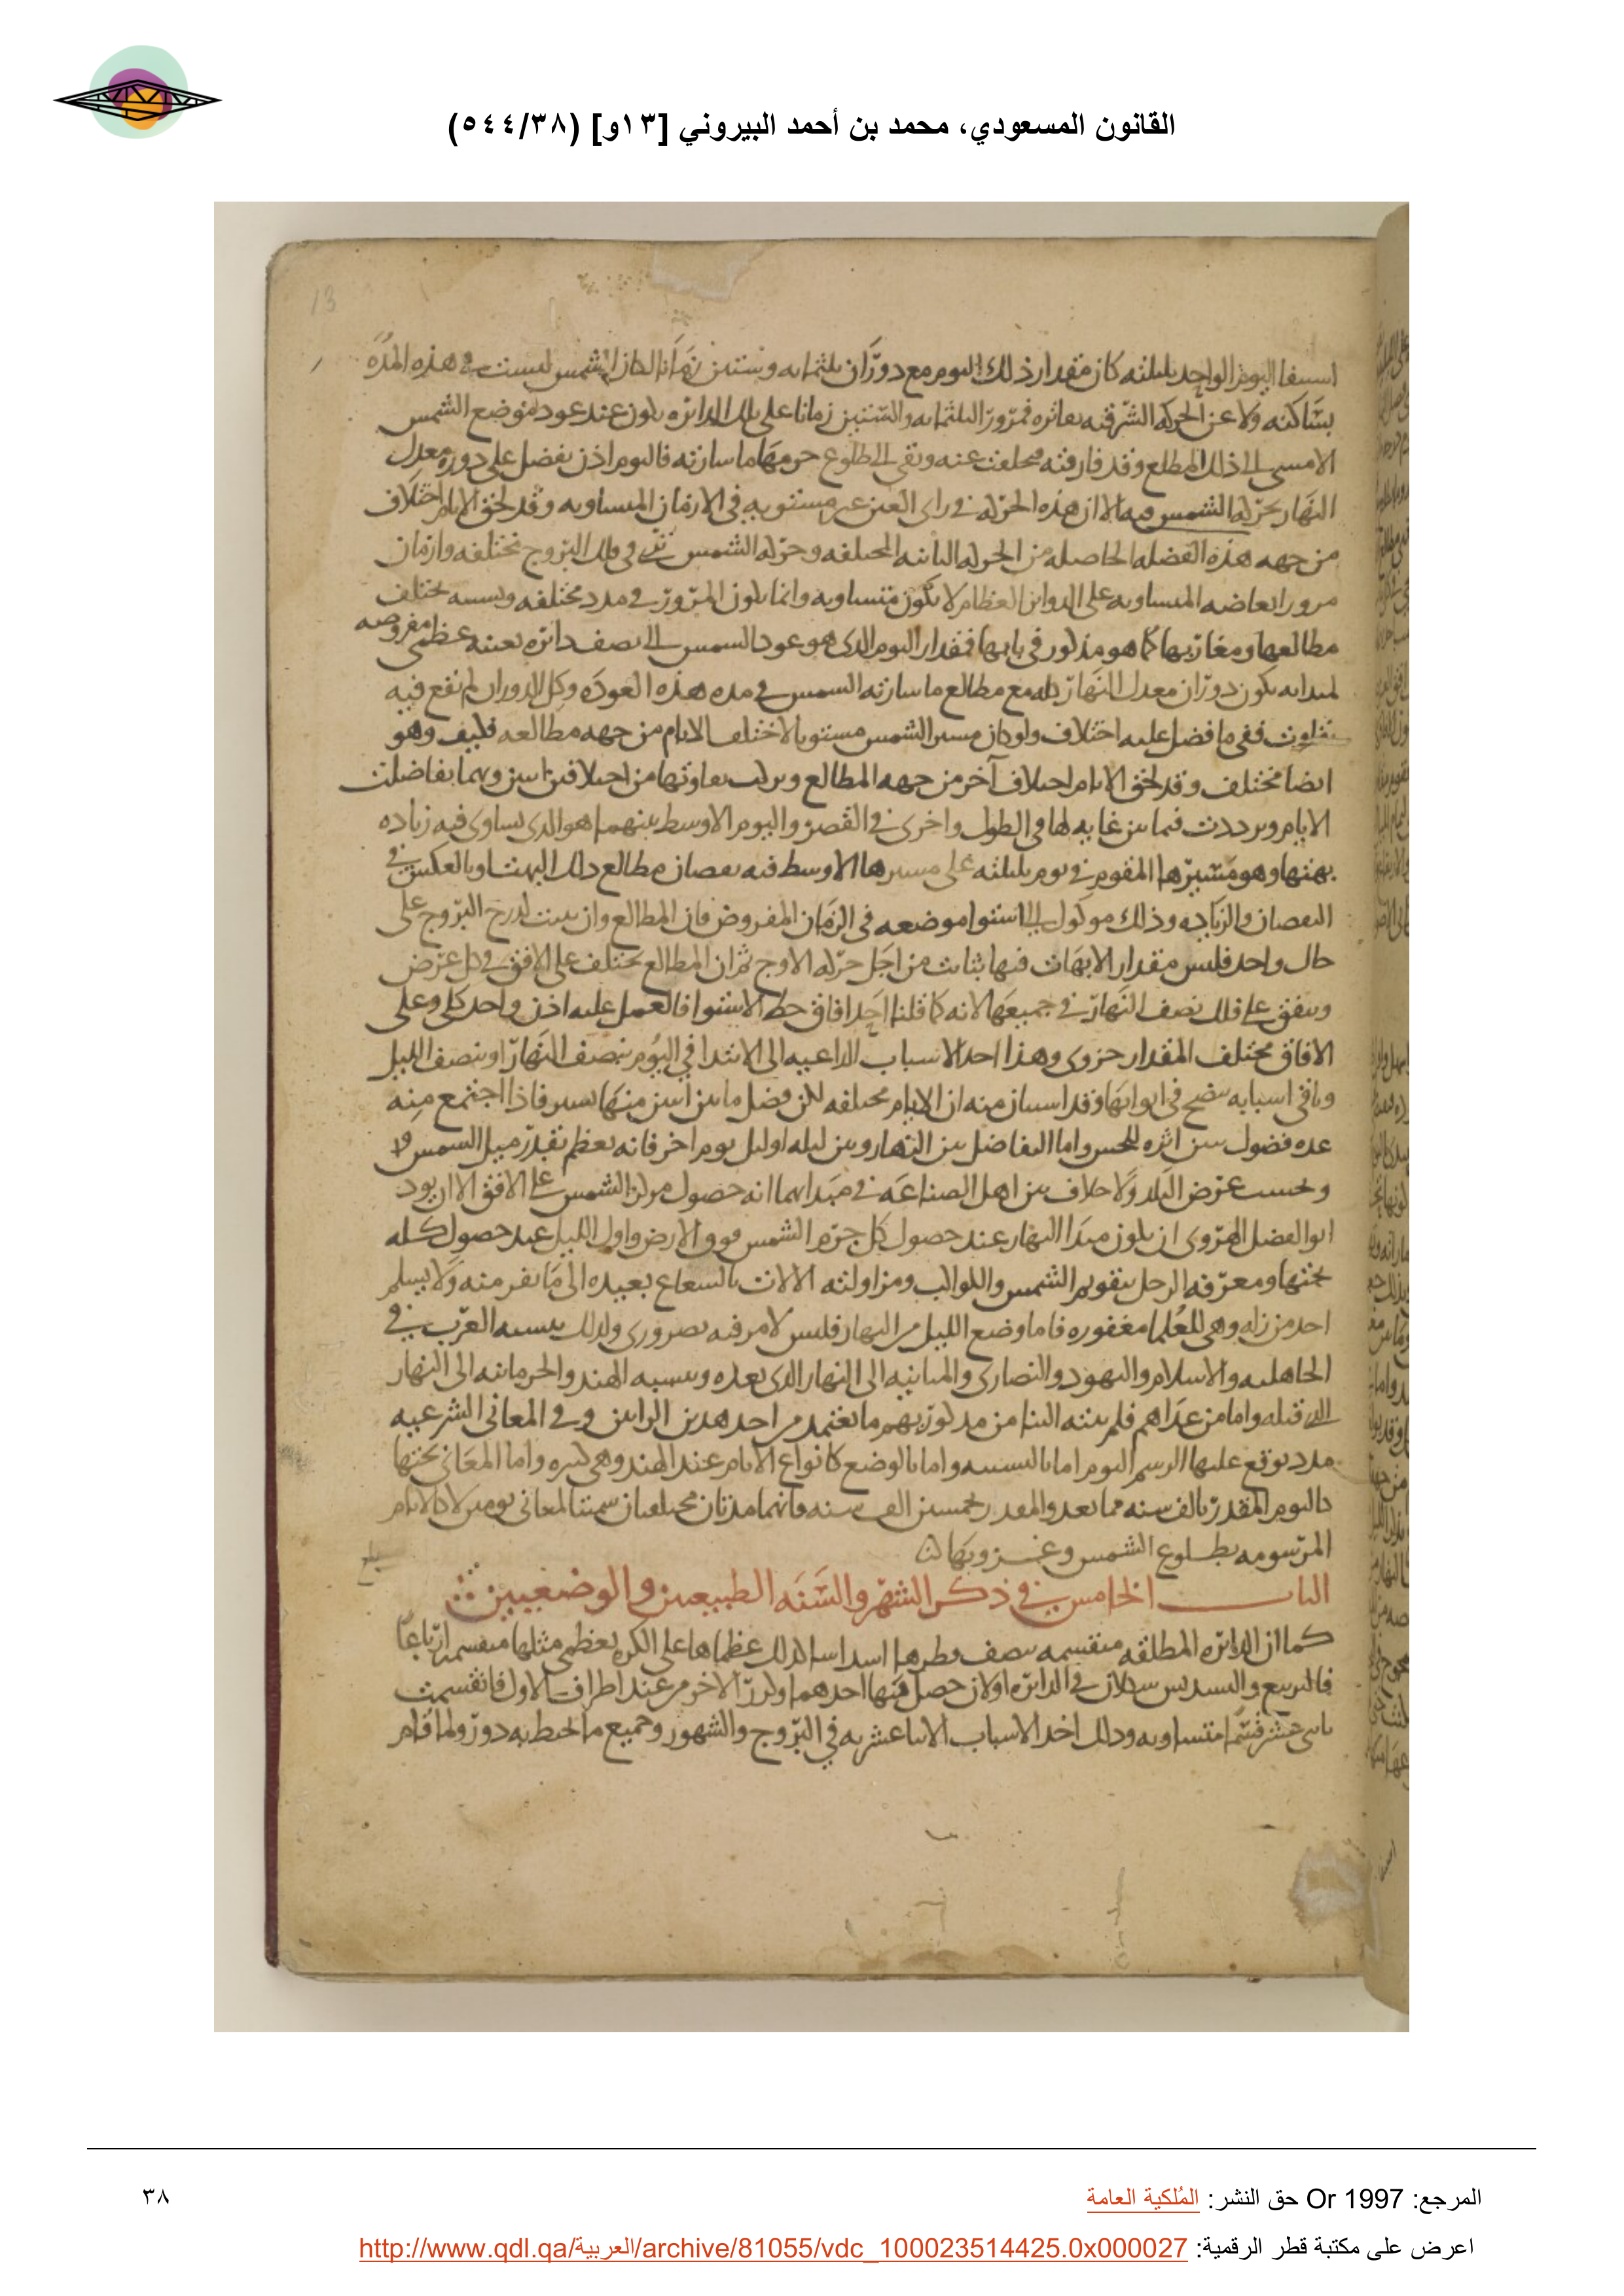 القانون المسعودي، محمد بن أحمد البيروني [١٣و] (٥٤٤/٣٨)
13
اليوم الواحد بليلته كان مقدار ذلك اليوم مع دوران وستين زمانا الشمس ليست في هذه المدة
بساكنة ولا عن الحركة الشرقية الدائره عند عود موضع الشمس
الامسى الى ذلك المطلع وقد فارقته عنه وبقى الى طلوع ما سارته فاليوم اذن يفضل على دورة معدل
النهار بحركه الشمس فيه الا ان هذه الحركه في راى العين غير مستويه في الازمان المتساويه وقد لحق الايام اختلاف
من جهه هذه الفضله الحاصله من الحركه المختلفه وحركه الشمس في فلك البروج مختلفه وازمان
مرور ابعاضه المتساويه على الدواير العظام لا تكون متساويه وانما يكون المرور في مدد مختلفه تختلف
مطالعها ومغاربها كما هو مذكور في بابها فمقدار اليوم الذى هو عود الشمس الى نصف دائره بعينه عظمى مفروضه
يكون دوران معدل النهار كله مع مطالع ما سارته الشمس في مده هذه العوده وكل الدوران لم يقع فيه
تفاوت ففى ما فضل عليه اختلاف ولو كان مسير الشمس مستويا لاختلف الايام من جهه مطالعه فكيف وهو
ايضا مختلف وقد لحق الايام اختلاف آخر من جهه المطالع وتركب تفاوتها من اختلافين اثنين وبهما تفاضلت
الايام وترددت فيما بين غايه لها في الطول واخرى في القصر واليوم الاوسط بينهما هو الذى يساوى فيه زياده
بهتها وهو مسيرها المقوم في يوم بليلته على مسيرها الاوسط فيه نقصان مطالع ذلك البهت او بالعكس في
النقصان والزياده وذلك موكول الى استوا موضعه في الزمان المفروض فان المطالع وان ثبتت لدرج البروج على
حال واحد فليس مقدار الابهات فيها بثابت من اجل حركه الاوج ثم ان المطالع تختلف على الافق في كل عرض
ويتفق على فلك نصف النهار في جميعها لانه كما قلنا احد افاق خط الاستوا فالعمل عليه اذن واحد كلى وعلى
الافاق مختلف المقدار جزوى وهذا احد الاسباب الداعيه الى الابتدا في اليوم بنصف النهار او بنصف الليل
وباقى اسبابه يتضح في ابوابها وقد استبان منه ان الايام مختلفه لكن فضل ما بين اثنين منها يسير فاذا اجتمع منه
عده فضول تبين اثره للحس واما التفاضل بين النهار وبين ليله او ليل يوم اخر فانه يعظم بقدر ميل الشمس
وبحسب عرض البلد ولا خلاف بين اهل الصناعه في مبدا انه حصول مركز الشمس على الافق الا ان يود
ابو الفضل الهروى ان يكون مبدا النهار عند حصول كل جرم الشمس فوق الارض واول الليل عند حصول كله
تحتها ومعرفه الرجل بتقويم الشمس والكواكب ومزاولته الالات بالشعاع بعيده الى ما نفر منه ولا يسلم
احد من زله وهى للعلما مغفوره فاما وضع الليل من النهار فليس لامر فيه ضرورى ولذلك ينسبه العرب في
الجاهليه والاسلام واليهود والنصارى والمانيه الى النهار الذى بعده وينسبه الهند والحرمانيه الى النهار
الذى قبله واما من عداهم فلم ينته الينا من مذكورهم ما يعتمد من احد هذين الرايين وفي المعانى الشرعيه
مدد يوقع عليها اسم اليوم اما بالنسبه واما بالوضع كانواع الايام عند الهند وهى كثيره واما المعانى تحتها
كاليوم المقدر بالف سنه مما يعد والمقدر بخمسين الف سنه فانهما مدتان مختلفتان لمعانى يومين لا كالايام
المرسومه بطلوع الشمس وغروبها
بلغ
الباب الخامس في ذكر الشهر والسنه الطبيعيين والوضعيين
كما ان الدائره المطلقه منقسمه بنصف قطرها اسداسا كذلك عظماها على الكره بعظمى مثلها منقسمه ارباعا
فالتربيع والتسديس في الدائره اولان حصل فيها احدهما وكرر الاخر من عند اطراف الاول فانقسمت
باثنى عشر قسما متساويه وذلك احد الاسباب الاثناعشريه في البروج والشهور وجميع ما يحيط به دور ولما قام
المرجع: Or 1997 حق النشر: المُلكية العامة
٣٨
اعرض على مكتبة قطر الرقمية: http://www.qdl.qa/العربية/archive/81055/vdc_100023514425.0x000027